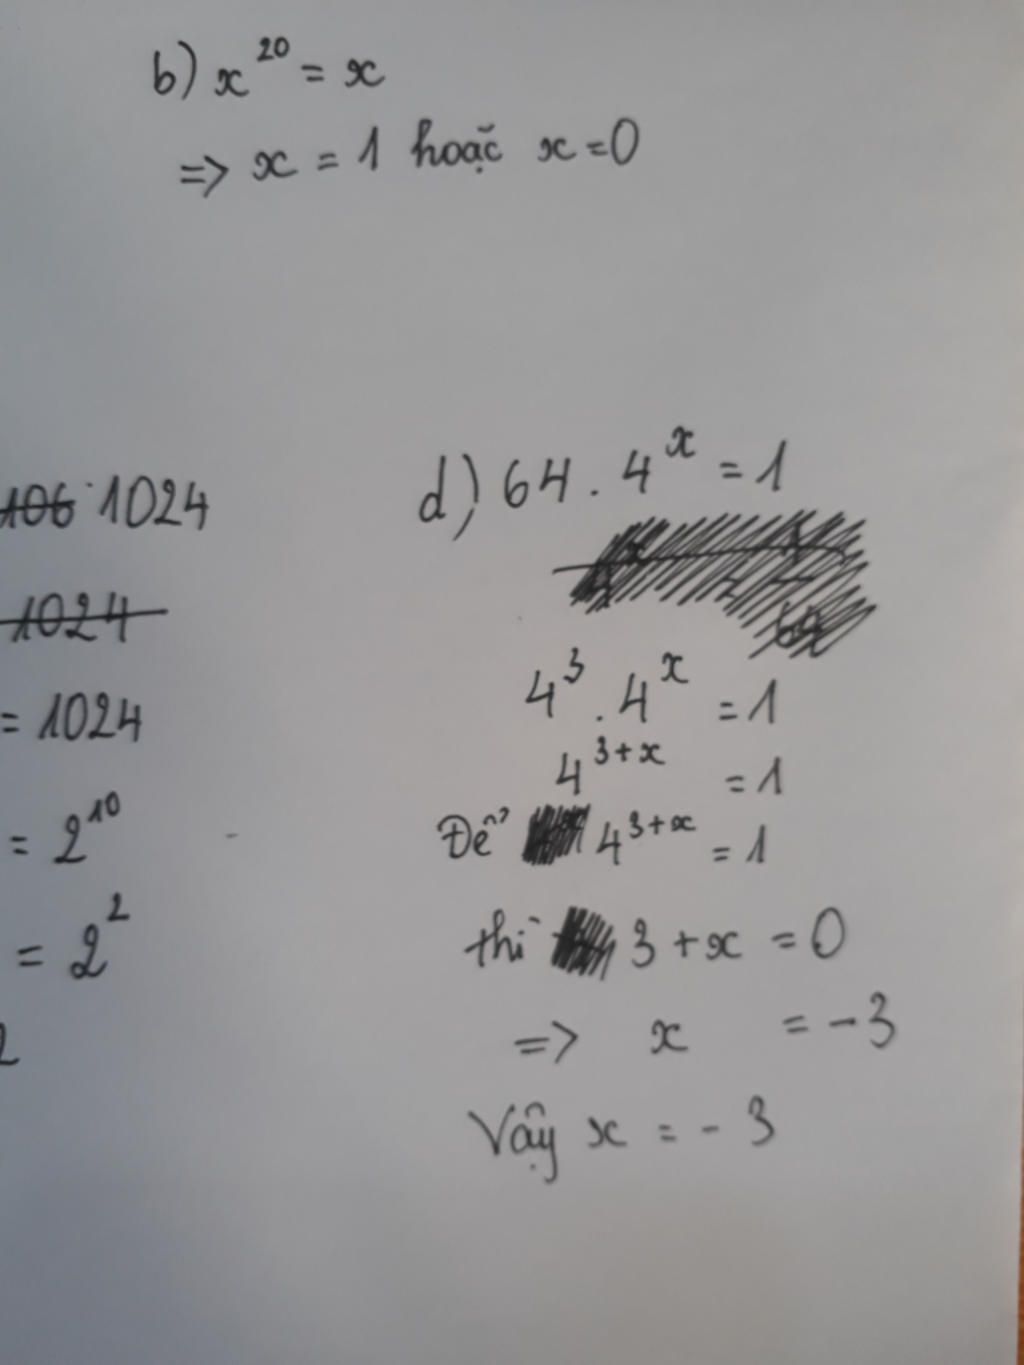 b) x^20 = x
=> x = 1 hoặc x = 0
106 1024
1024
= 1024
= 2^10
= 2^2
2
d) 64 . 4^x = 1
4^3 . 4^x = 1
4^3+x = 1
Để 4^3+x = 1
thì 3 + x = 0
=> x = -3
Vậy x = - 3